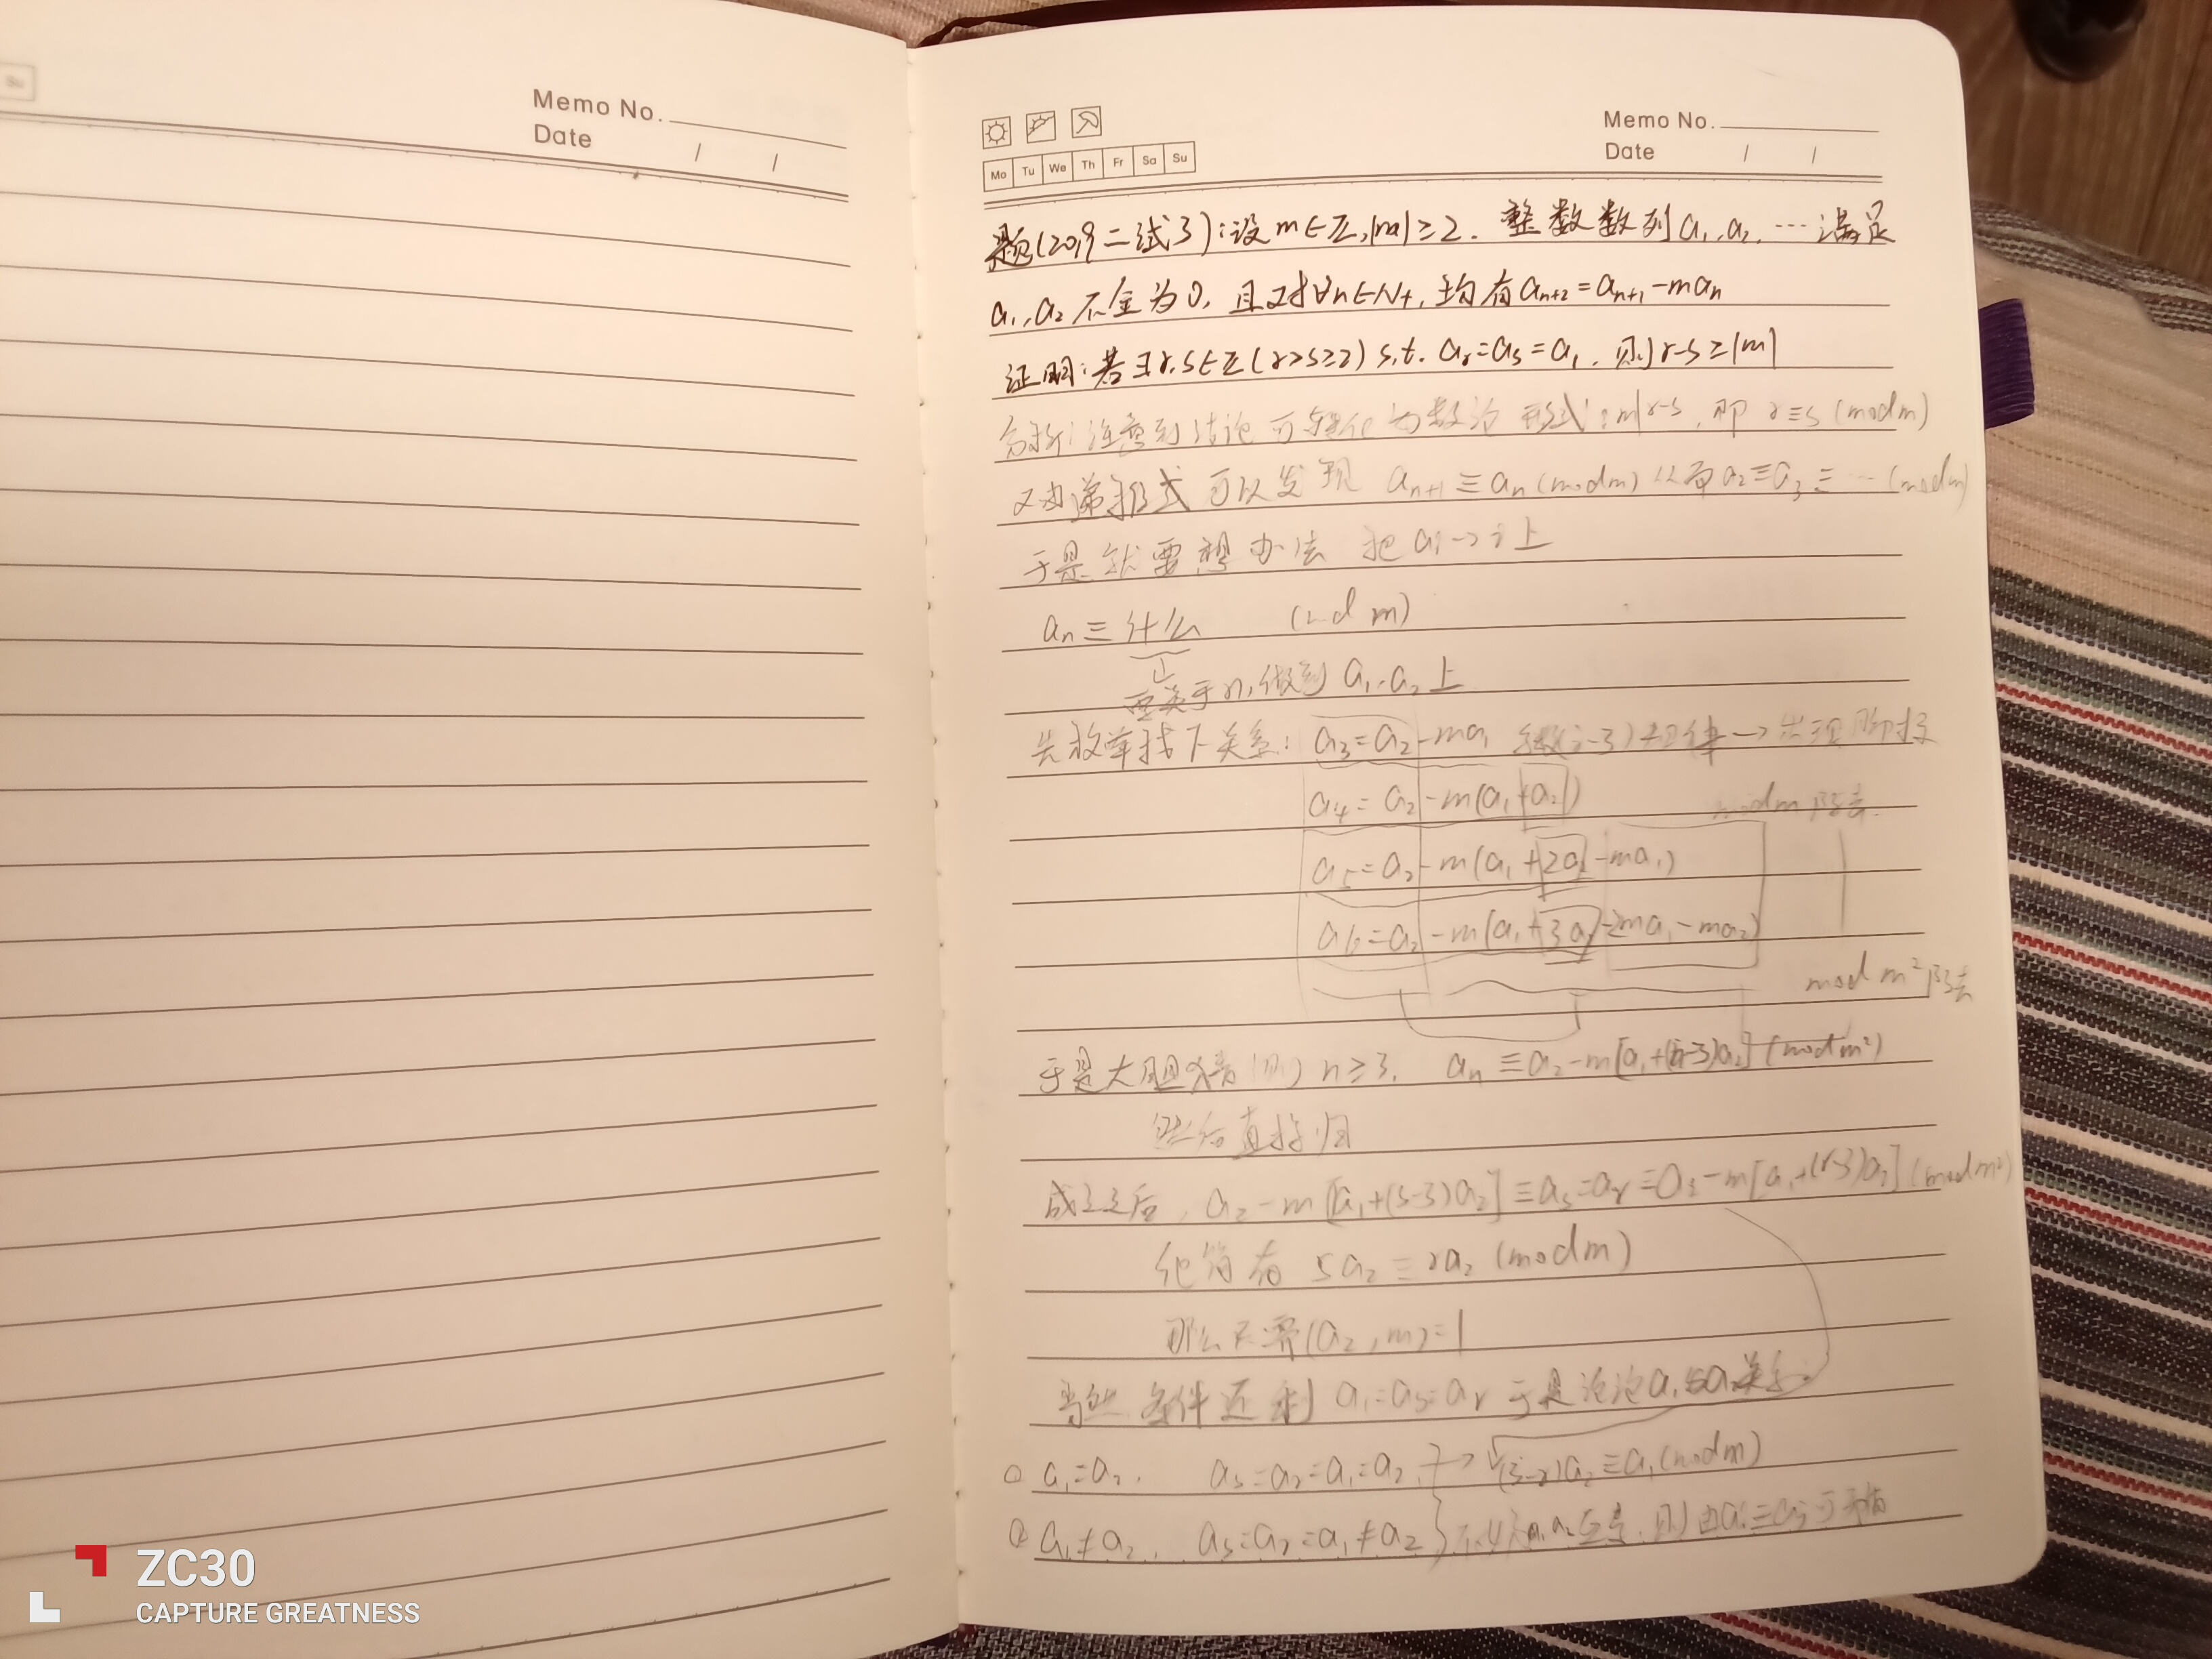 Su
Memo No.
Date / /
Memo No.
Date / /
Mo Tu We Th Fr Sa Su
题(2019二试3):设m∈Z,|m|≥2. 整数数列a₁,a₂,…满足
a₁,a₂不全为0,且对∀n∈N₊,均有aₙ₊₂=aₙ₊₁-maₙ
证明:若∃r,s∈Z(r>s≥2) s.t. aᵣ=aₛ=a₁.则r-s≥|m|
分析:注意到结论可转化为数论形式:m|r-s,即 r≡s(modm)
又由递推式可以发现 aₙ₊₁≡aₙ(modm)从而a₂≡a₃≡…(modm)
于是就要想办法 把aᵢ→i上
aₙ≡什么 ( d m)
要关于n,做到a₁,a₂上
先放单找下关系: a₃=a₂-ma₁ (i-3)规律→出现
a₄=a₂-m(a₁+a₂) modm
a₅=a₂-m(a₁+2a₂-ma₁)
a₆=a₂-m(a₁+3a₂-2ma₁-ma₂)
mod m²除去
于是大胆猜(测) n≥3. aₙ≡a₂-m[a₁+(n-3)a₂](modm²)
然后直接归
成立后,a₂-m[a₁+(s-3)a₂]≡aₛ=aᵣ≡a₂-m[a₁+(r-3)a₂](modm²)
化简有 sa₂≡ra₂(modm)
那么只需(a₂,m)=1
当然,条件还剩 a₁=aₛ=aᵣ 于是讨论a₁与a₂关系.
① a₁=a₂. aₛ=aᵣ=a₁=a₂ → (s-r)a₂≡a₁(modm)
② a₁≠a₂. aₛ=aᵣ=a₁≠a₂ 不妨a₁,a₂互素.则由aᵢ≡aⱼ可
ZC30
CAPTURE GREATNESS